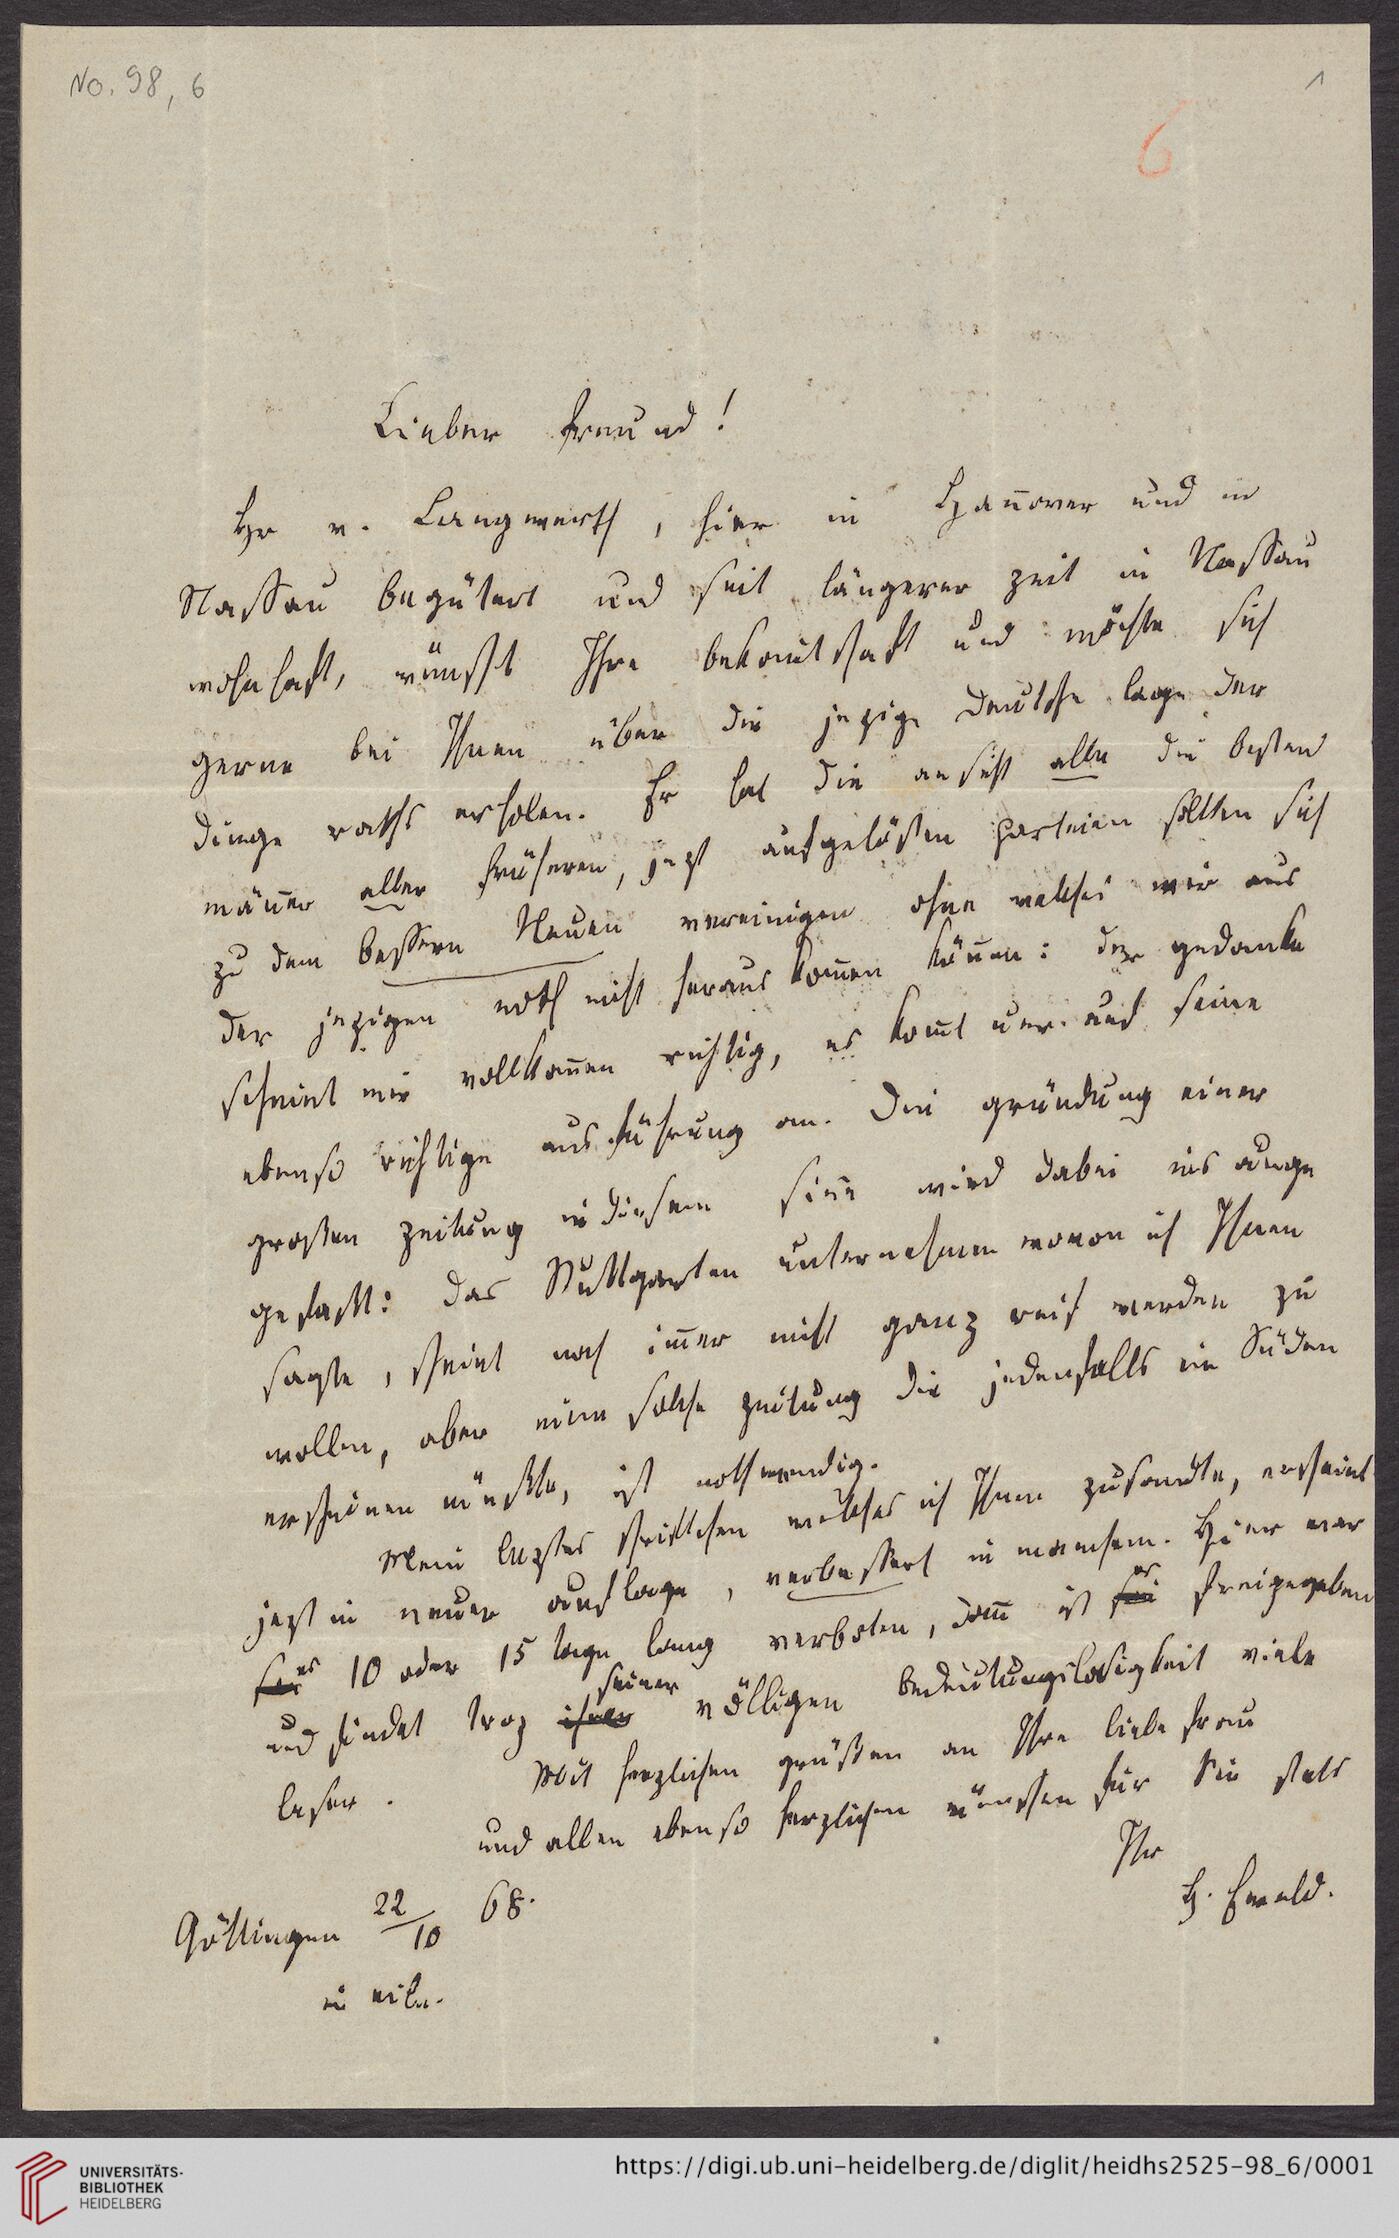 No. 98, 6
1
6
Lieber freund!
Hr v. Langwerth, hier in Hannover und in
Nassau begütert und seit längerer zeit in Nassau
wohnhaft, wünscht Ihre bekantschaft und möchte sich
gerne bei Ihnen über die jezige deutsche lage der
dinge raths erholen. Er hat die ansicht alle die besten
männer aller früheren, jezt aufgelösten parteien sollten sich
zu dem bessern Neuen vereinigen ohne welches wir aus
der jezigen noth nicht heraus kommen können: der gedanke
scheint mir vollkommen richtig, es komt nur auf seine
ebenso richtige ausführung an. Die gründung einer
großen zeitung in diesem sinne wird dabei ins auge
gefaßt: das Stuttgarter unternehmen wovon ich Ihnen
sagte, scheint noch immer nicht ganz reif werden zu
wollen, aber eine solche zeitung die jedenfalls im Süden
erscheinen müßte, ist nothwendig.
Mein leztes schriftchen welches ich Ihnen zusandte, erscheint
jezt in neuer auflage, verbessert in manchem. Hier war
es 10 oder 15 tage lang verboten, dann ist es freigegeben
und findet troz seiner völligen bedeutungslosigkeit viele
leser.
Mit herzlichen grüßen an Ihre liebe frau
und allen ebenso herzlichen wünschen für Sie stets
Ihr
H. Ewald.
Göttingen 22/10 68.
in eile.
UNIVERSITÄTS-
BIBLIOTHEK
HEIDELBERG
https://digi.ub.uni-heidelberg.de/diglit/heidhs2525-98_6/0001